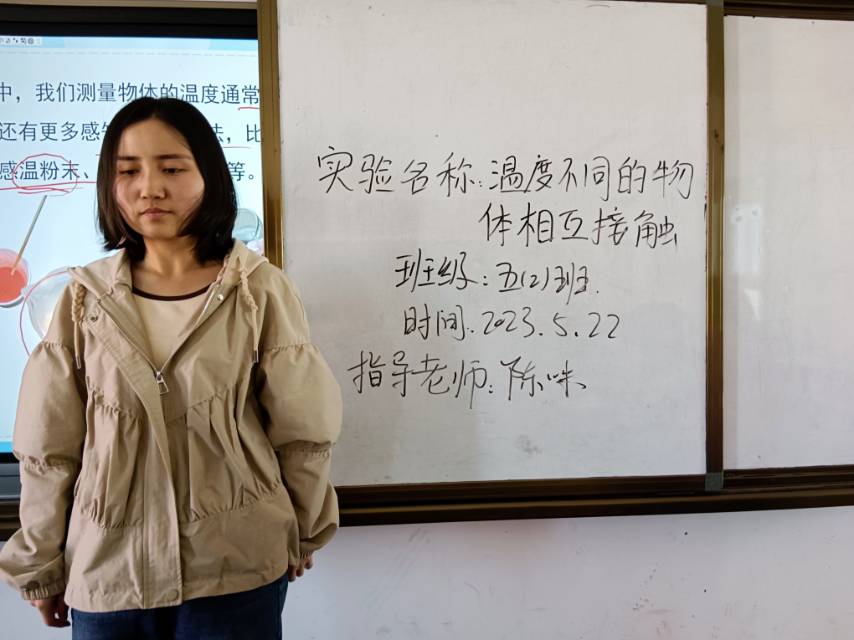 中，我们测量物体的温度通常
还有更多感 法，比
感温粉末、 等。
实验名称：温度不同的物
体相互接触
班级：五(2)班
时间：2023.5.22
指导老师：陈